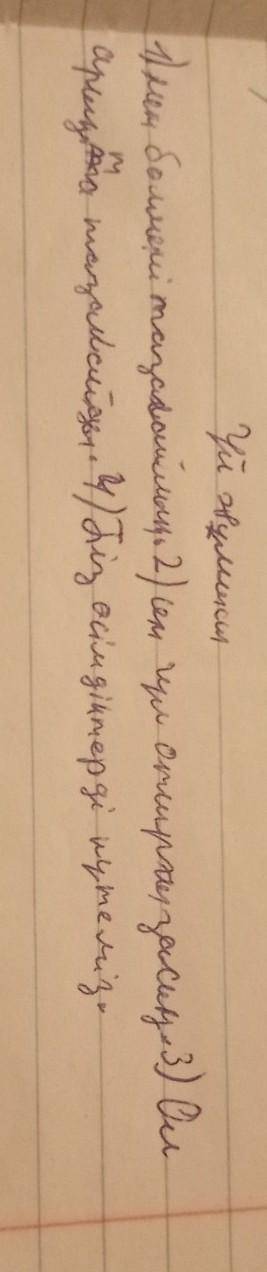 Үй жұмысы
1) Мен бөлмені тазалаймын. 2) Сен гүл отырғызасың. 3) Ол
арықты тазалайды. 4) Біз өсімдіктерді күтеміз.